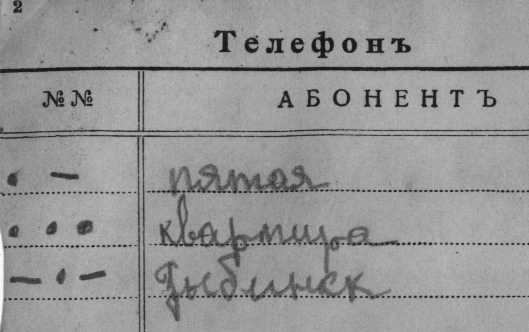 2
Телефонъ
№№ АБОНЕНТЪ
• — пятая
• • • квартира
— • — Рыбинск